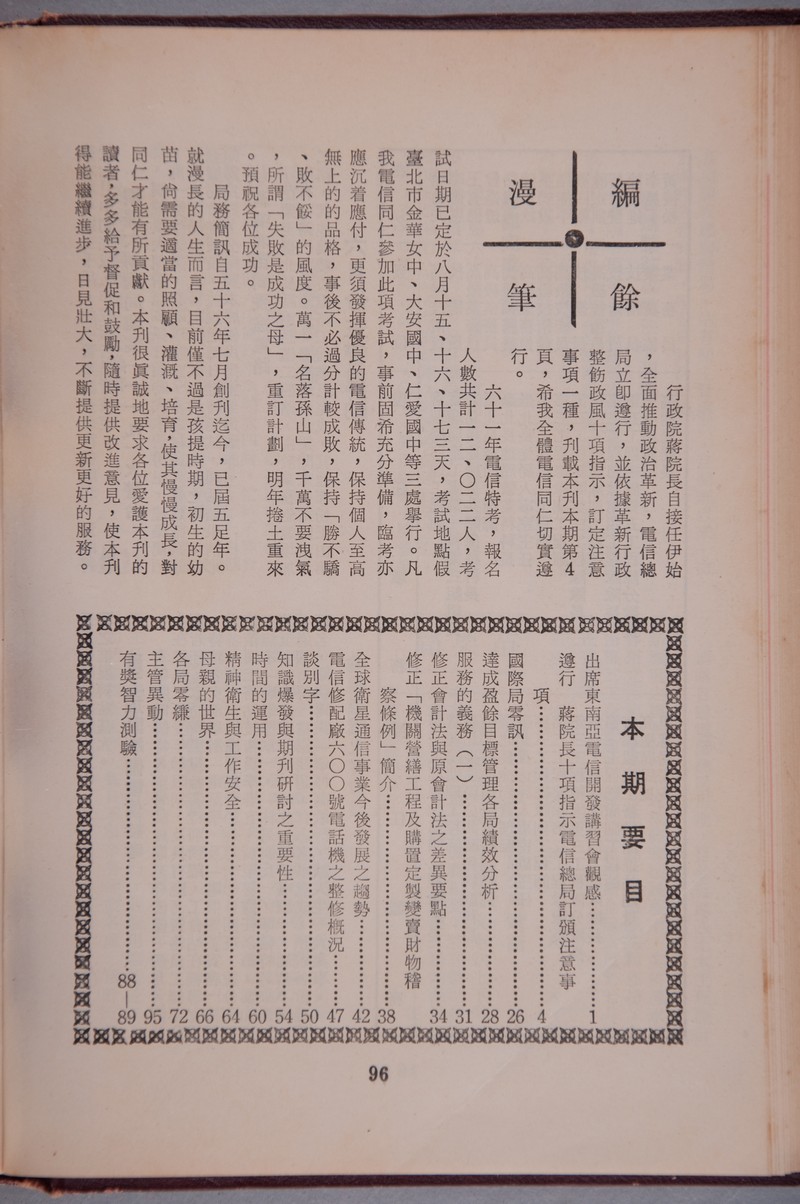 編餘
漫筆
行政院蔣院長自接任伊始
，全面推動政治革新，電信總
局立即遵行，並依據革新行政
整飭政風十項指示，訂定注意
事項一種，刊載本刊本期第4
頁，希我全體電信同仁切實遵
行。
六十一年電信特考，報名
人數共計一二、〇二二人，考
試日期已定於八月十五、十六、十七三天，考試地點假
臺北市金華女中、大安國中、仁愛國中等三處舉行。凡
我電信同仁參加此項考試，事前固希充分準備，臨考亦
應沉着應付，更須發揮優良的電信傳統，保持個人至高
無上的的品格，事後不必過分計較成敗，保持「勝不驕
、敗不餒」的風度。萬一「名落孫山」，千萬不要洩氣
，所謂「失敗是成功之母」，重訂計劃，明年捲土重來
。預祝各位成功。
局務簡訊自五十六年七月創刊迄今，已屆五足年。
就漫長的人生而言，目前僅不過是孩提時期，初生的幼
苗，尙需要適當的照顧、灌溉、培育，使其慢慢成長，對
同仁才能有所貢獻。本刊很眞誠地要求各位愛護本刊的
讀者，多多給予督促和鼓勵，隨時提供改進意見，使本刊
得能繼續進步，日見壯大，不斷提供更新更好的服務。
本期要目
出席東南亞電信開發講習會觀感…………1
遵行　蔣院長十項指示電信總局訂頒注意事
項…………4
國際局零訊…………26
達成盈餘目標管理各局績效分析…………28
服務的義務（一）…………31
修正會計法與原會計法之差異要點…………34
修正「機關營繕工程及購置定製變賣財物稽
察條例」簡介…………38
全球衛星通信事業今後發展之趨勢…………42
電信修配廠六〇〇號電話機之整修概況…………47
談別字…………50
知識爆發與期刊研討之重要性…………54
時間的運用…………60
精神衛生與工作安全…………64
母親的世界…………66
各局零縑…………72
主管異動…………95
有獎智力測驗…………88－89
96